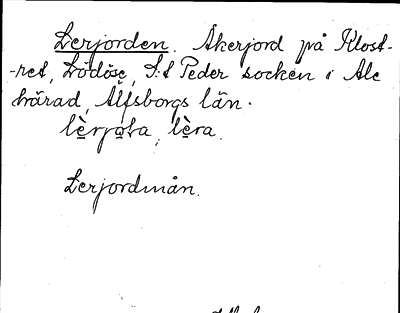 Lerjorden. Åkerjord på Klost-
-ret, Lödöse, S:t Peder socken i Ale
härad, Älfsborgs län.
lèrjola, lèra.
Lerjordmån.